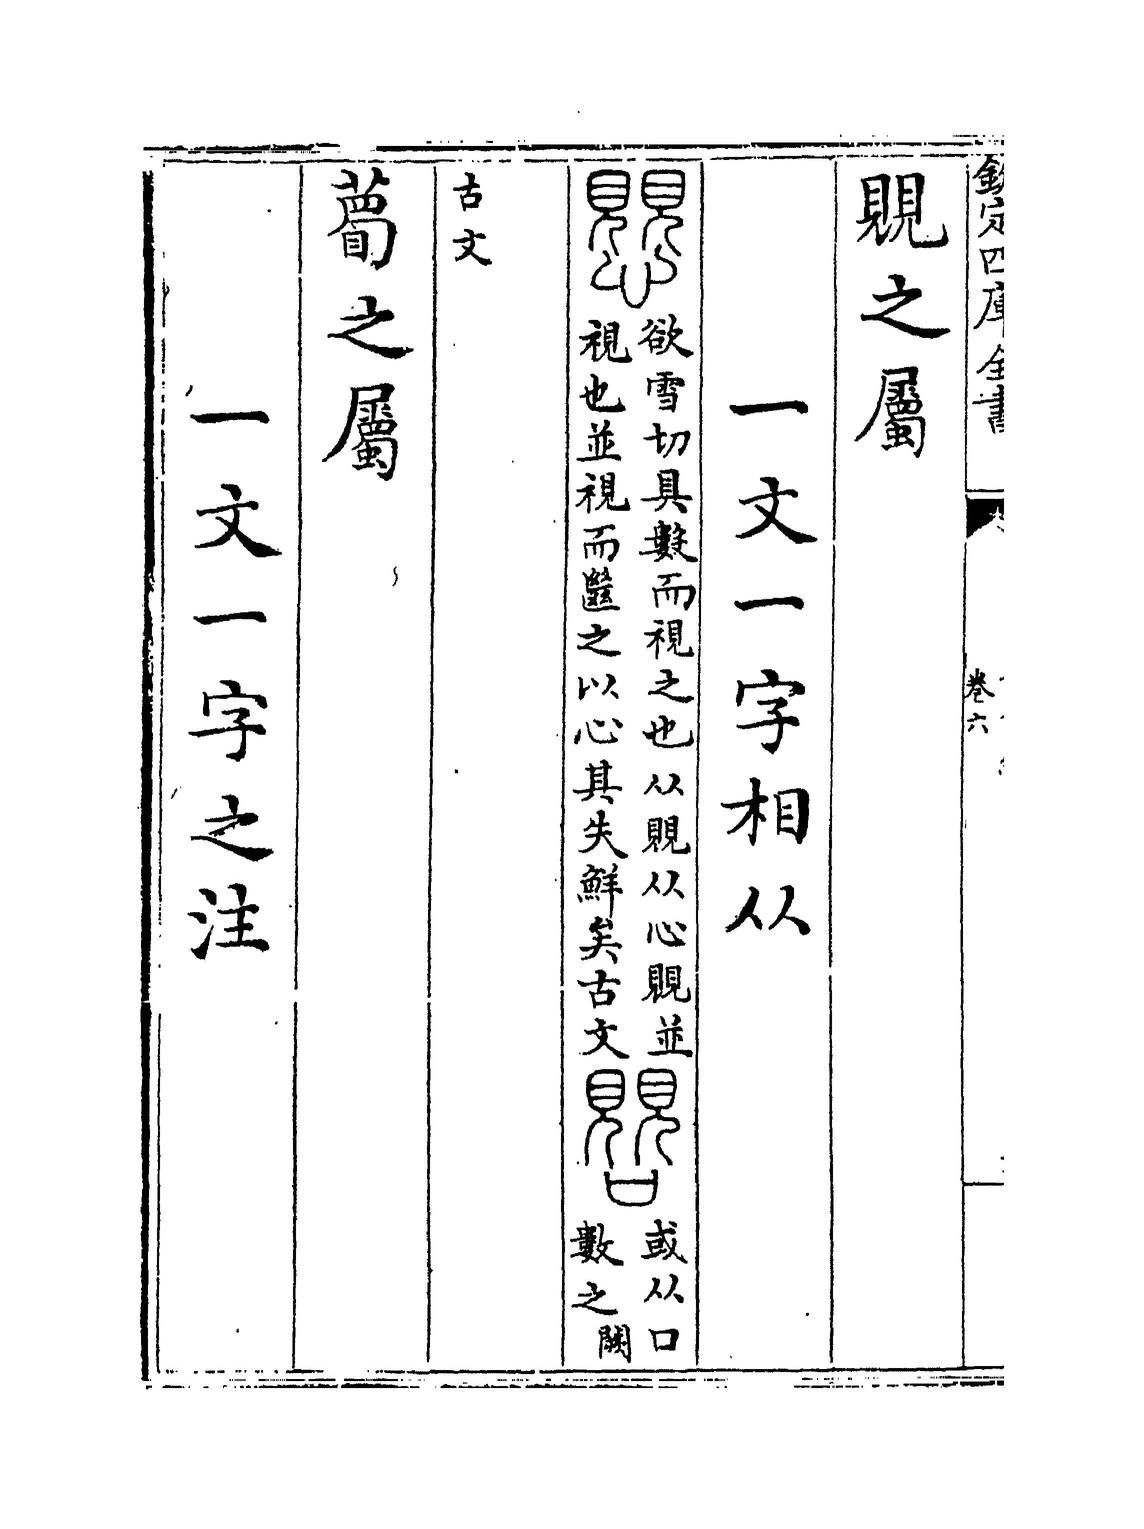 欽定四庫全書
卷六
覞之屬
一文一字相从
欲雪切具數而視之也从覞从心覞並
視也並視而之以心其失鮮矣古文
或从口
數之闕
古文
之屬
一文一字之注